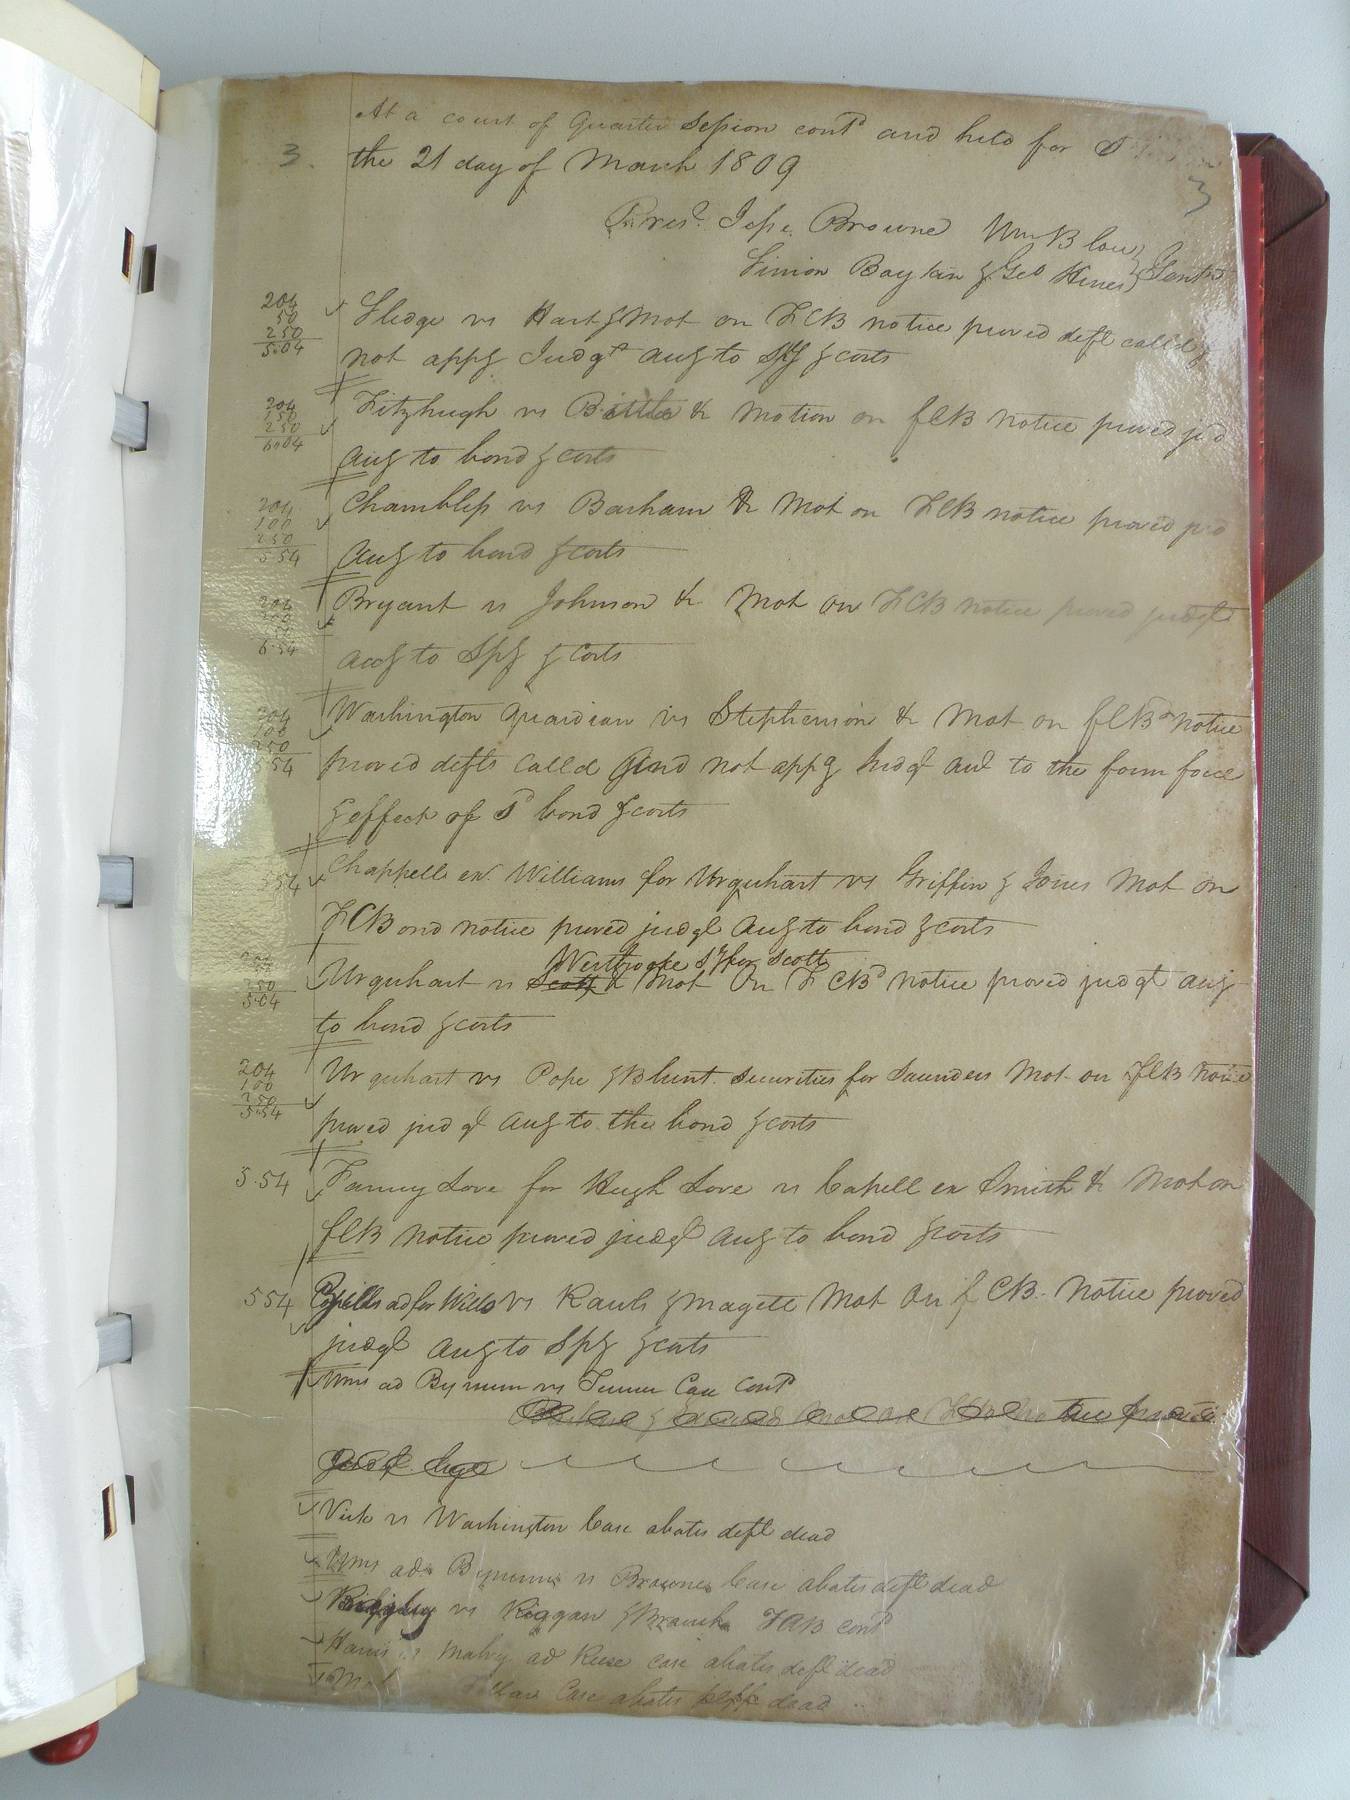 At a court of Quarter Session contd and held for S
3.
the 21 day of March 1809
3
Presd. Jesse Browne Wm Blow
Simon Boykin & Geo Hines } Gentn
204
50
250
5.04
Sledge vs Hart & Mot on FCB notice proved deft calld &
not appg Judgt awg to Spy & costs
204
150
250
6.04
Fitzhugh vs Bittle &c Motion on fCB notice proved jud
awg to bond & costs
204
100
250
5 54
Chambless vs Barham &c Mot on FCB notice proved jud
awg to bond & costs
204
6.54
Bryant vs Johnson &c Mot on FCB notice proved judgt
awg to Spy & Costs
204
100
250
5 54
Washington guardian vs Stephenson &c Mot on fCBd notice
proved defts calld and not appg Judgt awd to the form force
& effect of sd bond & costs
554
Chappell ex. Williams for Urquhart vs Griffin & Jones Mot on
FCBond notice proved judgt awg to bond & costs
Westbrooke Sy for Scott
250
5.04
Urquhart vs Scott &c Mot On FCBd notice proved judgt awg
to bond & costs
204
100
250
5.54
Urquhart vs Pope & Blunt securities for Saunders Mot on fCB notice
proved judgt awg to the bond & costs
5.54
Fanny Love for Hugh Love vs Capell ex Smith &c Mot on
fCB notice proved judgt awg to bond & costs
554
Capells ad for Wills vs Rawls & Magett Mot On f CB. notice proved
judgt awg to Spy & costs
Wms ad Bynum vs Turner Case contd
notice proved
Judgt
Vick vs Washington Case abates deft dead
Wms ads Bynums vs Brownes Case abates deft dead
vs Riggan & Branch FAB contd
Harris vs Malry ad Reese case abates deft dead
Case abates plff dead